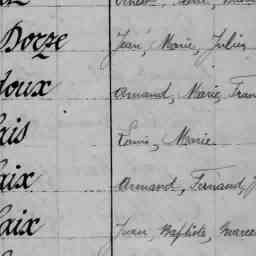 Dorze Jean, Marie, Julien
doux Armand, Marie, Fran
ais Louis, Marie
aix Armand, Fernand, J
aix Jean, Baptiste, Marcel